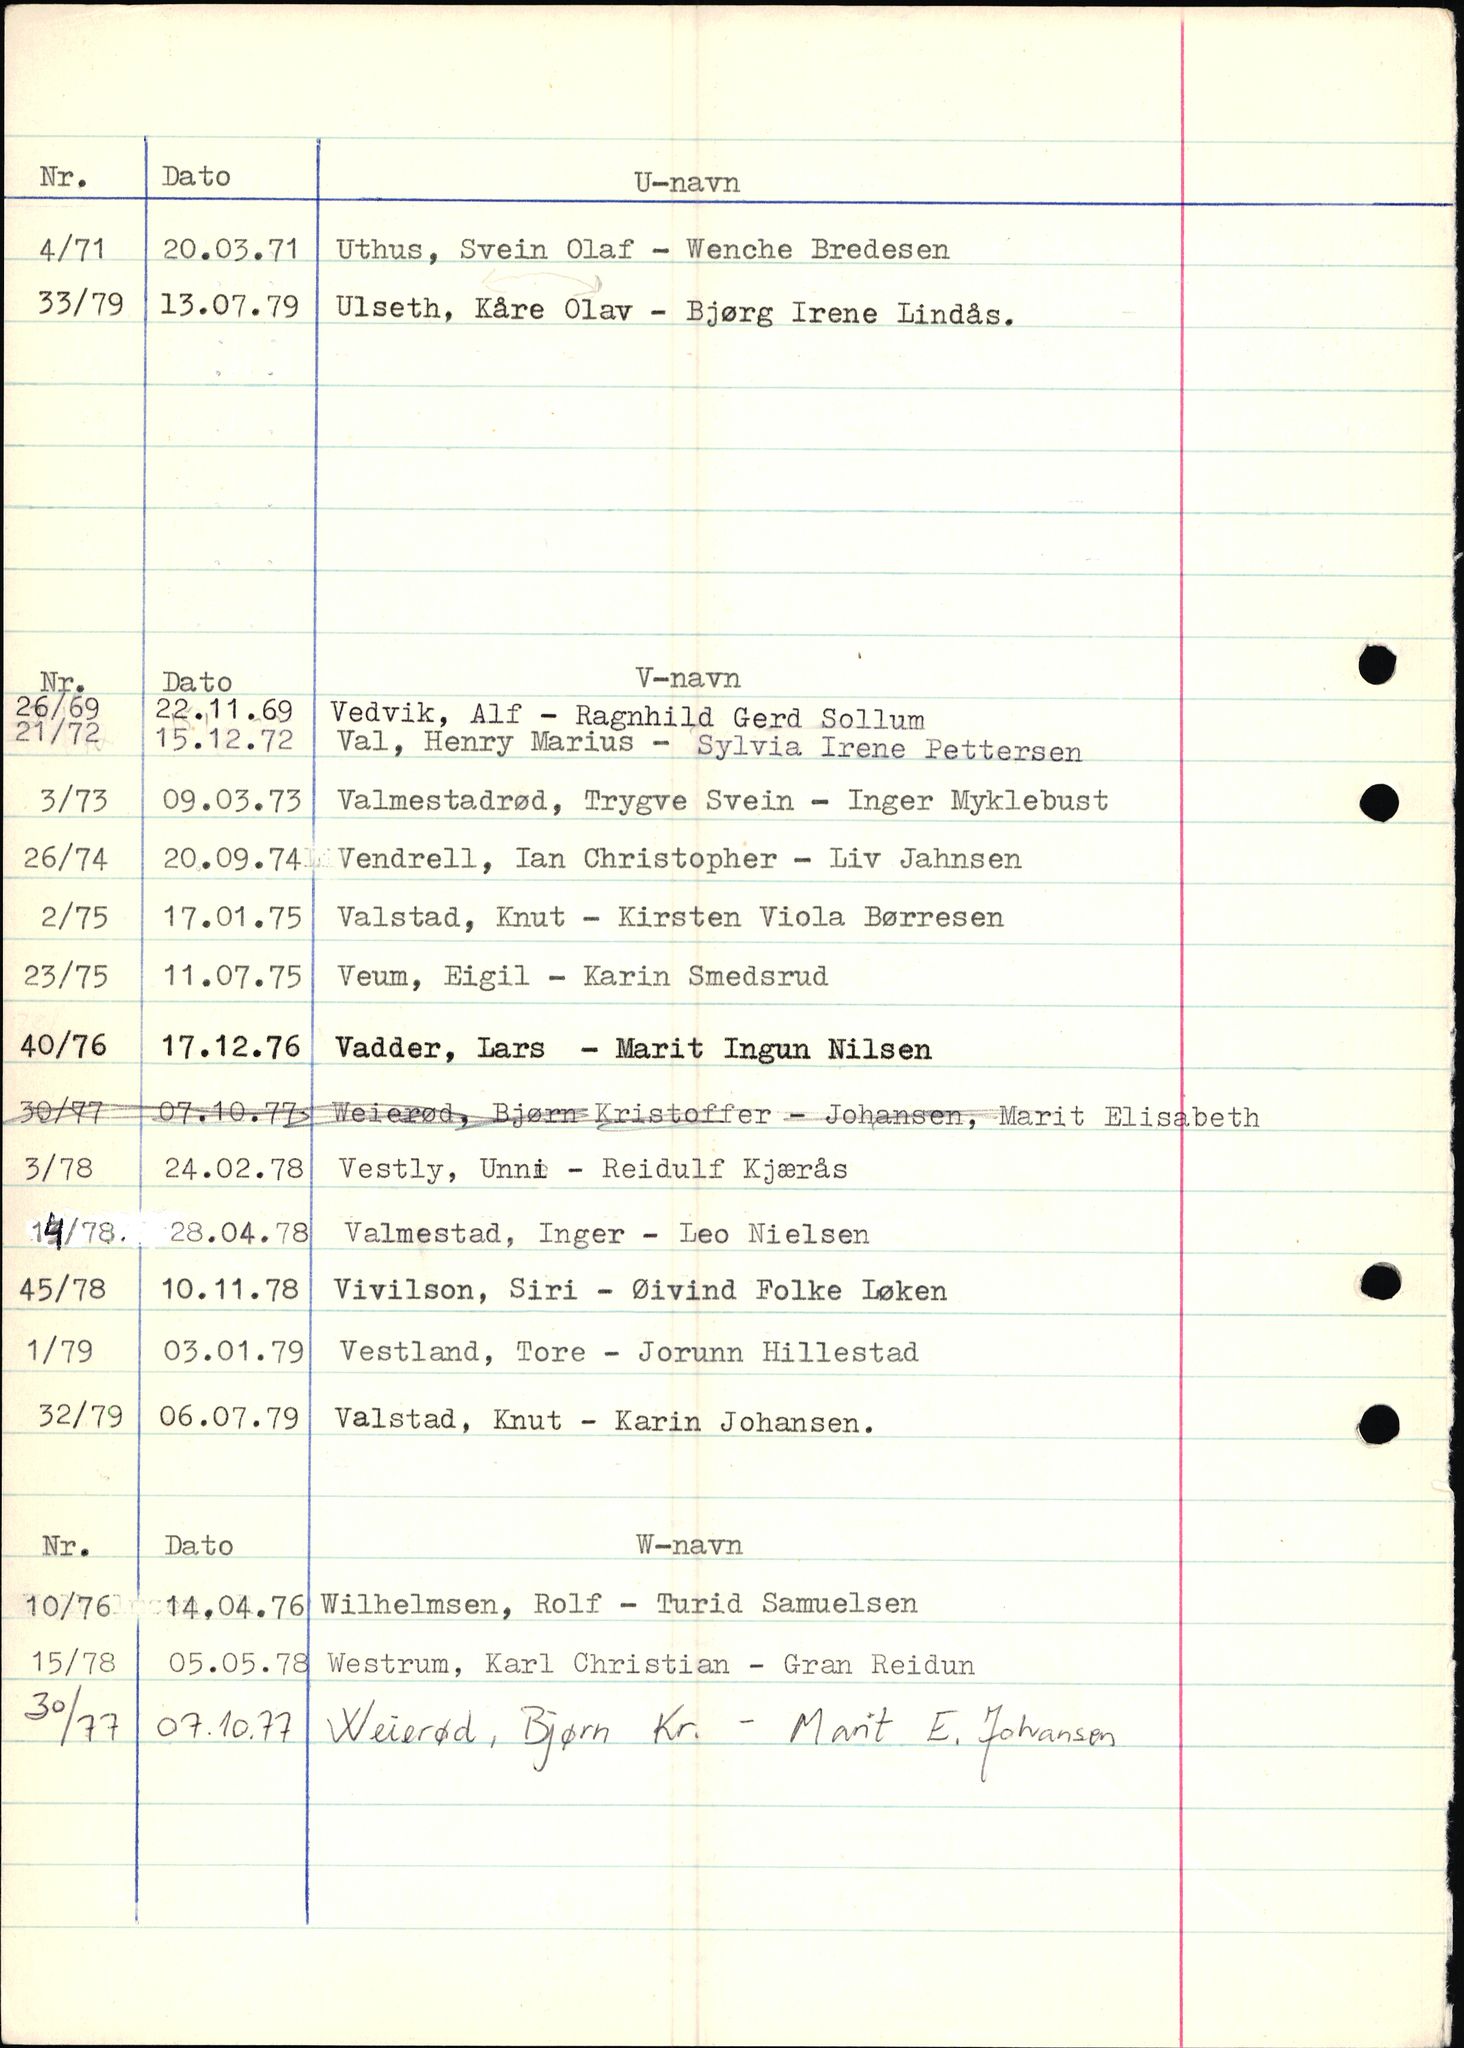 Nr. Dato U-navn
4/71 20.03.71 Uthus, Svein Olaf - Wenche Bredesen
33/79 13.07.79 Ulseth, Kåre Olav - Bjørg Irene Lindås.
Nr. Dato V-navn
26/69 22.11.69 Vedvik, Alf - Ragnhild Gerd Sollum
21/72 15.12.72 Val, Henry Marius - Sylvia Irene Pettersen
3/73 09.03.73 Valmestadrød, Trygve Svein - Inger Myklebust
26/74 20.09.74 Vendrell, Ian Christopher - Liv Jahnsen
2/75 17.01.75 Valstad, Knut - Kirsten Viola Børresen
23/75 11.07.75 Veum, Eigil - Karin Smedsrud
40/76 17.12.76 Vadder, Lars - Marit Ingun Nilsen
30/77 07.10.77 Weierød, Bjørn Kristoffer - Johansen, Marit Elisabeth
3/78 24.02.78 Vestly, Unni - Reidulf Kjærås
14/78. 28.04.78 Valmestad, Inger - Leo Nielsen
45/78 10.11.78 Vivilson, Siri - Øivind Folke Løken
1/79 03.01.79 Vestland, Tore - Jorunn Hillestad
32/79 06.07.79 Valstad, Knut - Karin Johansen.
Nr. Dato W-navn
10/76 14.04.76 Wilhelmsen, Rolf - Turid Samuelsen
15/78 05.05.78 Westrum, Karl Christian - Gran Reidun
30/77 07.10.77 Weierød, Bjørn Kr. - Marit E. Johansen